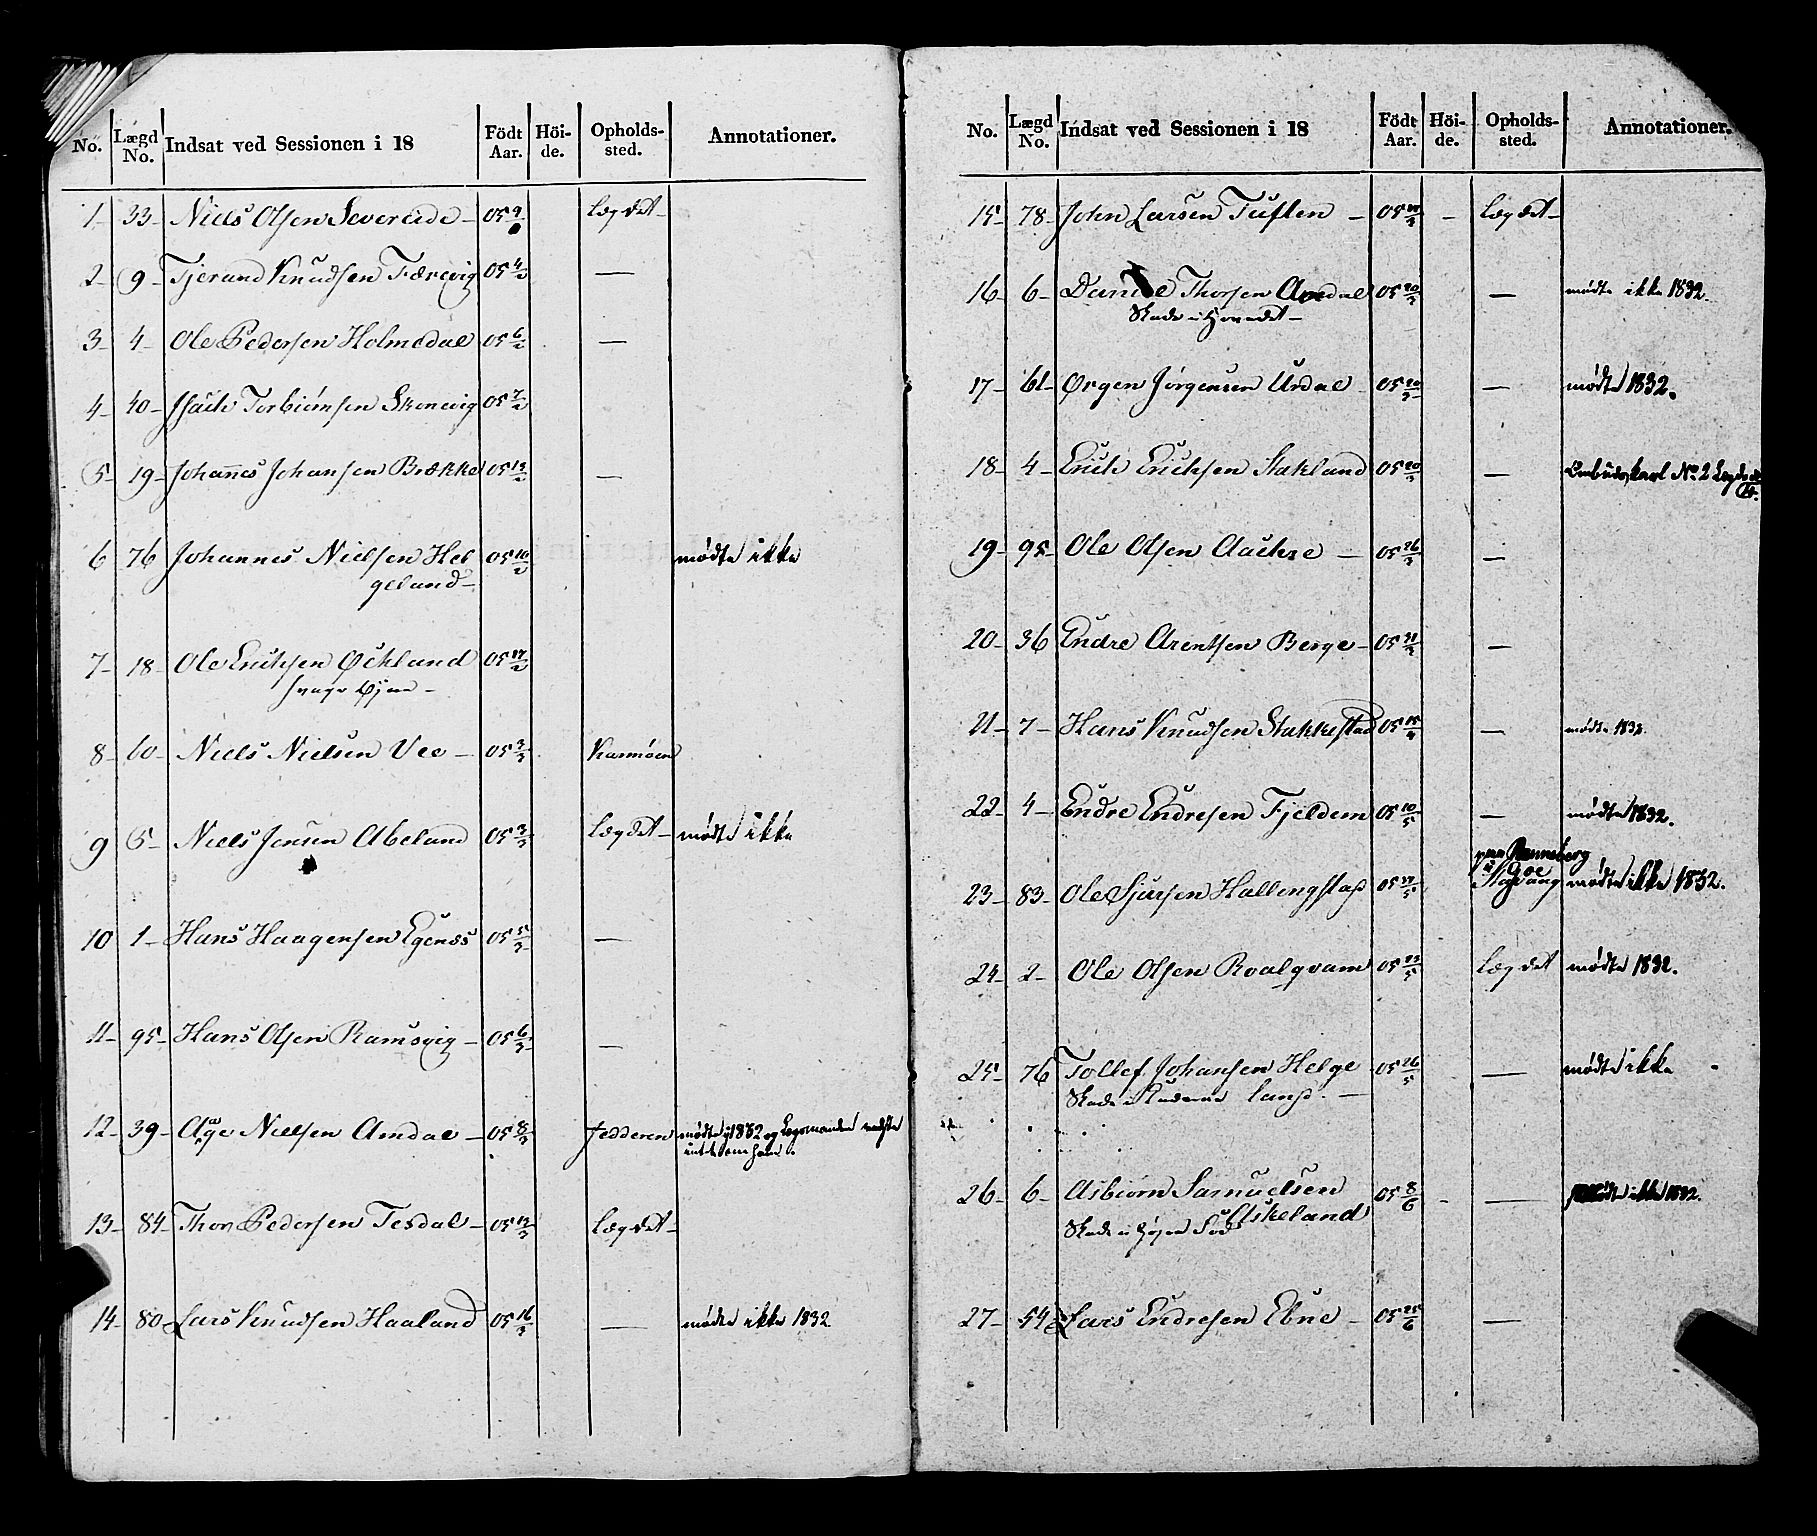 No. Lægd No. Indsat ved Sessionen i 18 Födt Aar. Höi-de. Opholds-sted. Annotationer.
1 33 Niels Olsen Severeide 05 9/2 Lægdet
2 9 Tjerand Knudsen Færevig 05 4/2 —
3 4 Ole Pedersen Holmedal 05 6/2 —
4 40 Isach Torbiørnsen Skonevig 05 7/2
5 19 Johannes Johansen Brække 05 13/2 —
6 76 Johannes Nielsen Hel 05 10/2 mødte ikke
geland
7 18 Ole Erichsen Øchland 05 17/2
svage Øjne
8 60 Niels Nielsen Vee 05 3/3 Karmøen
9 5 Niels Jensen Abeland 05 3/3 Lægdet mødte ikke
10 1 Hans Haagensen Egenæs 05 5/3 —
11 95 Hans Olsen Ramsvig 05 6/3 —
12 39 Aage Nielsen Amdal 05 8/3 Jedderen mødte i 1832 og Lægsmanden vidste
intet om ham.
13 84 Thor Pedersen Tesdal 05 12/3 Lægdet
14 80 Lars Knudsen Haaland 05 16/3 — mødte ikke 1832
No. Lægd No. Indsat ved Sessionen i 18 Födt Aar. Höi-de. Opholds-sted. Annotationer.
15 78 John Larsen Tuften 05 - Lægdet
16 6 Daniel Thorsen Amdal 05 20/3 — mødte ikke 1832.
Skade i Hovedet
17 61 Ørgen Jørgensen Urdal 05 20/3 — mødte 1832.
18 4 Erich Erichsen Stakland 05 20/3 — Ombudskarl No. 2 Lægds
19 95 Ole Olsen Aachre 05 26/3 —
20 36 Endre Arentsen Berge 05 31/3 —
21 7 Hans Knudsen Stakkestad 05 15/4 — mødte 1832
22 4 Endre Endresen Fjeldem 05 10/5 — mødte 1832.
23 83 Ole Sjursen Hallingstad 05 17/5 paa Ranneberg
i
Stavang mødte ikke 1832.
24 2 Ole Olsen Roalqvam 05 23/5 Lægdet mødte 1832.
25 76 Tollef Johansen Helge 05 26/5 — mødte ikke
Skade i land.
26 6 Asbiørn Samuelsen 05 8/6 - — mødte ikke 1832.
Eskeland
Skade i højre Fod
27 54 Lars Endresen Ebne 05 25/6 —